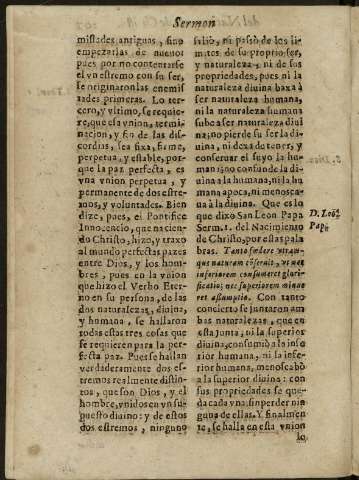 Sermon
mistades antiguas, sino
empezarlas de nueuo:
pues por no contentarse
el vn estremo con su ser,
se originaron las enemis
tades primeras. Lo ter-
cero, y vltimo, se requie-
re, que esa vnion, termi-
nacion, y fin de las dis-
cordias, sea fixa, firme,
perpetua, y estable, por-
que la paz perfecta, es
vna vnion perpetua, y
permanente de dos estre-
mos, y voluntades. Bien
dize, pues, el Pontifice
Innocencio, que nacien-
do Christo, hizo, y traxo
al mundo perfectas pazes
entre Dios, y los hom-
bres, pues en la vnion
que hizo el Verbo Eter-
no en su persona, de las
dos naturalezas, diuina,
y humana, se hallaron
todas estas tres cosas que
se requieren para la per-
fecta paz. Pues se hallan
verdaderamente dos es-
tremos realmente distin-
tos, que son Dios, y el
hombre, vnidos en vn su-
puesto diuino: y de estos
dos estremos, ninguno
salió, ni passò de los li-
mites de su proprio ser,
y naturaleza, ni de sus
propiedades, pues ni la
naturaleza diuina baxa à
ser naturaleza humana,
ni la naturaleza humana
sube a ser naturaleza diui
na; no pierde su ser la di-
uina, ni dexa de tener, y
conseruar el suyo la hu-
mana: no confunde la di-
uina a la humana, ni la hu
mana apoca, ni menosca-
ua à la diuina. Que es lo
que dixo San Leon Papa
Serm. 1. del Nacimiento
de Christo, por estas pala
bras. Tanto fœdere vtram-
que naturam
inferiorem consumeret glori-
ficatio; nec superiorem minue
ret assumptio. Con tanto
concierto se juntaron am
bas naturalezas, que en
esta junta, ni la superior
diuina, consumiò a la infe
rior humana, ni la infe-
rior humana, menoscabò
a la superior diuina: con
sus propriedades se que-
da cada vna, sin perder nin
guna de ellas. Y finalmen
te, se halla en esta vnion
lo
D. Leõ
Pap.